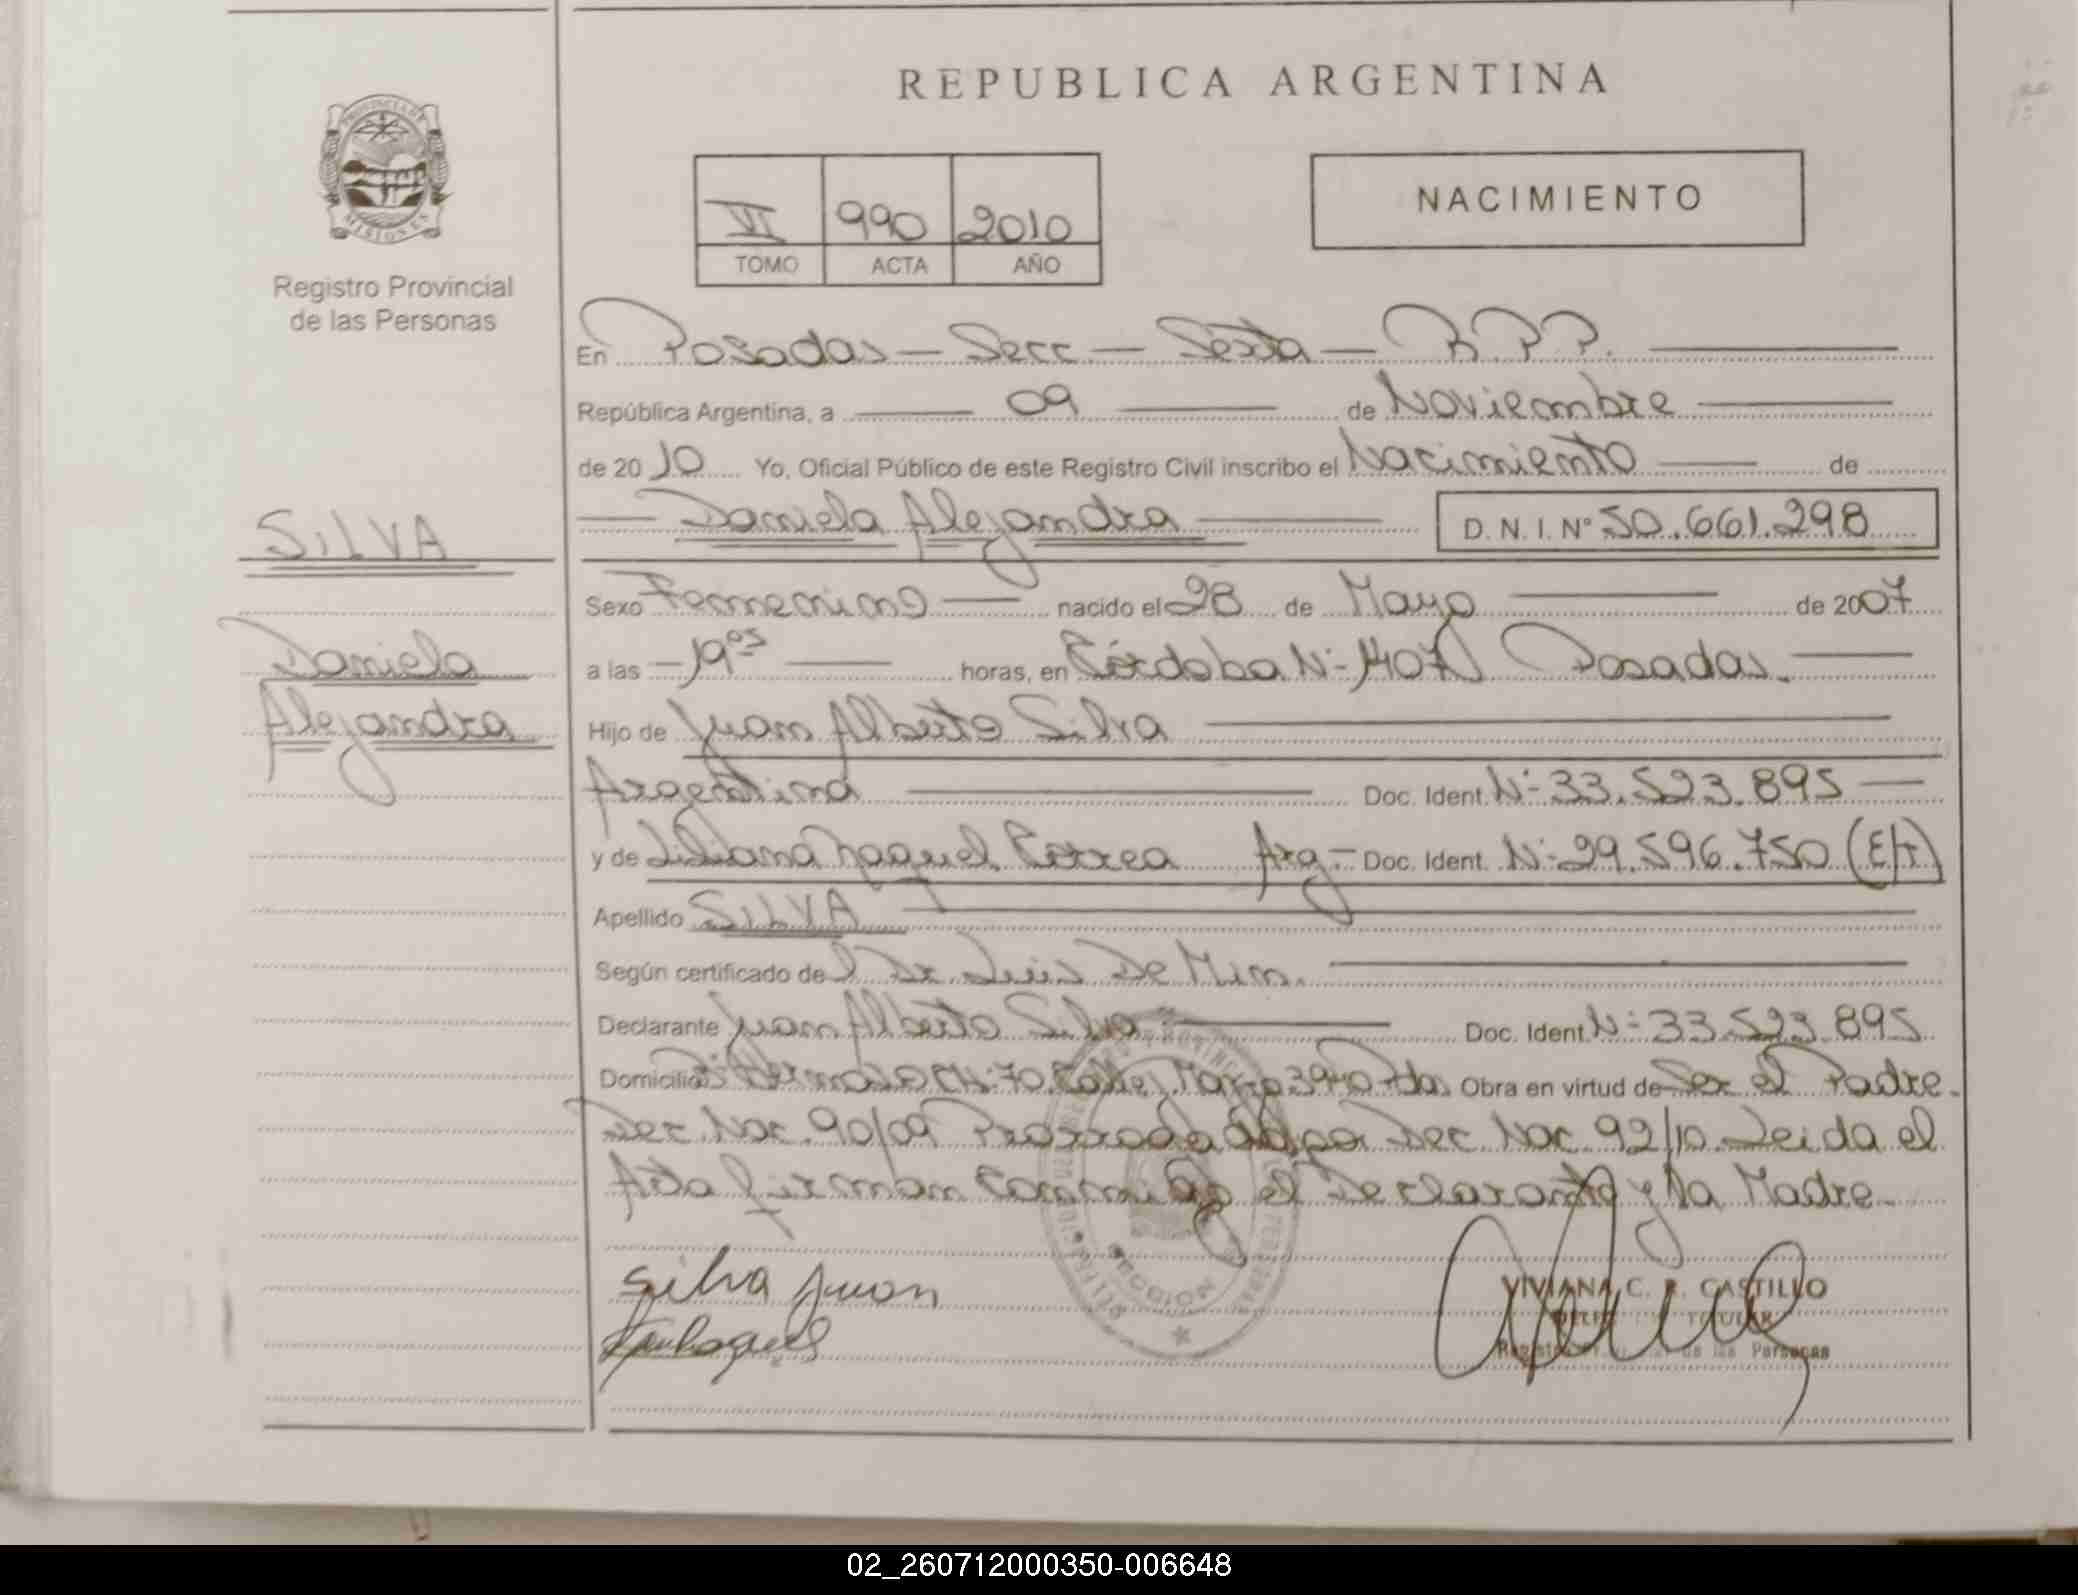 REPUBLICA ARGENTINA
PROVINCIA DE
MISIONES
Registro Provincial
de las Personas
NACIMIENTO
VI 990 2010
TOMO ACTA AÑO
En Posadas - Secc - Sexta - R.P.P.
República Argentina, a 09 de Noviembre
de 2010 Yo, Oficial Público de este Registro Civil inscribo el Nacimiento de
Daniela Alejandra D. N. I. Nº 50.661.298
SILVA
Daniela
Alejandra
Sexo Femenino nacido el 28 de Mayo de 2007
a las 19 05 horas, en Córdoba Nº 1407 Posadas.
Hijo de Juan Alberto Silva
Argentina Doc. Ident. Nº 33.523.895
y de Liliana Raquel Correa Arg- Doc. Ident. Nº 29.596.750 (E/T)
Apellido SILVA
Según certificado del Dr Luis De Mim.
Declarante Juan Alberto Silva Doc. Ident. Nº 33.523.895
Domicilio Obra en virtud de Ser el Padre.
Dec. Nac. 90/09 Prorrogada por Dec. Nac. 92/10. Leida el
Acta firman conmigo el Declarante y la Madre.
Silva Juan
VIVIANA C. R. CASTILLO
TITULAR
Registro de las Personas
SECCION
02_260712000350-006648